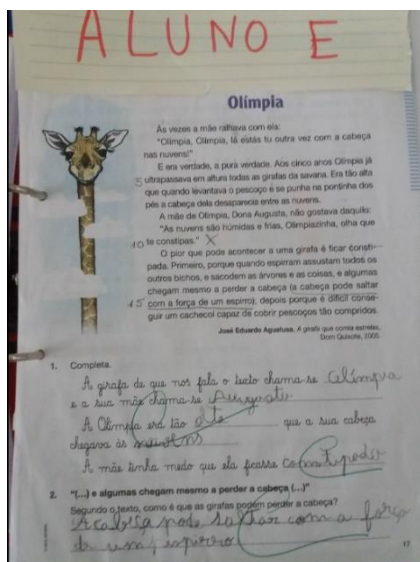 ALUNO E
Olímpia
Às vezes a mãe ralhava com ela:
"Olímpia, Olímpia, lá estás tu outra vez com a cabeça
nas nuvens!"
E era verdade, a pura verdade. Aos cinco anos Olímpia já
5 ultrapassava em altura todas as girafas da savana. Era tão alta
que quando levantava o pescoço e se punha na pontinha dos
pés a cabeça dela desaparecia entre as nuvens.
A mãe de Olímpia, Dona Augusta, não gostava daquilo:
"As nuvens são húmidas e frias, Olimpiazinha, olha que
10 te constipas." X
O pior que pode acontecer a uma girafa é ficar consti-
pada. Primeiro, porque quando espirram assustam todos os
outros bichos, e sacodem as árvores e as coisas, e algumas
chegam mesmo a perder a cabeça (a cabeça pode saltar
15 com a força de um espirro); depois porque é difícil conse-
guir um cachecol capaz de cobrir pescoços tão compridos.
José Eduardo Agualusa, A girafa que comia estrelas,
Dom Quixote, 2005.
1. Completa.
A girafa de que nos fala o texto chama-se Olímpia
e a sua mãe chama-se Augusta
A Olímpia era tão alta que a sua cabeça
chegava às nuvens
A mãe tinha medo que ela ficasse
2. "(...) e algumas chegam mesmo a perder a cabeça (...)"
Segundo o texto, como é que as girafas podem perder a cabeça?
A cabeça pode saltar com a força
de um
17